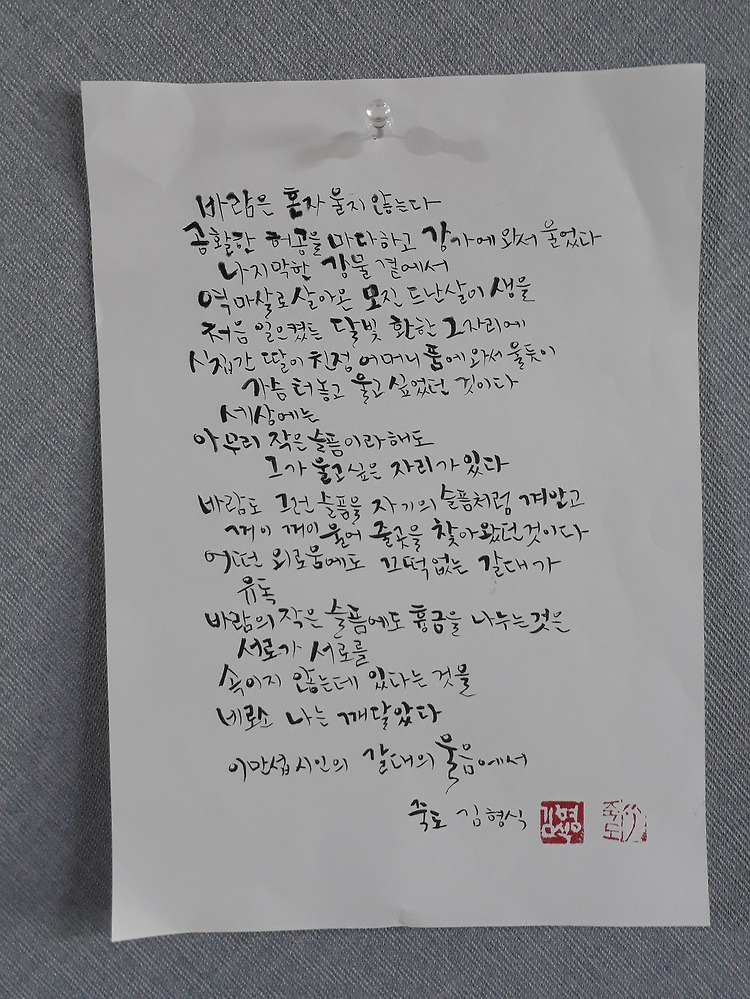 바람은 혼자 울지 않는다
공활한 허공을 마다하고 강가에 와서 울었다
나지막한 강물 곁에서
역마살로 살아온 모진 드난살이 생을
처음 일으켰든 달빛 환한 그자리에
시집간 딸이 친정 어머니 품에 와서 울듯이
가슴 터놓고 울고 싶었던 것이다
세상에는
아무리 작은 슬픔이라 해도
그가 울고싶은 자리가 있다
바람도 그런 슬픔을 자기의 슬픔처럼 껴안고
꺼이 꺼이 울어 줄곳을 찾아왔던것이다
어떤 외로움에도 끄떡없는 갈대가
유독
바람의 작은 슬픔에도 흉금을 나누는것은
서로가 서로를
속이지 않는데 있다는 것을
비로소 나는 깨달았다
이만섭시인의 갈대의 울음에서
죽도 김형식 김형식 죽도